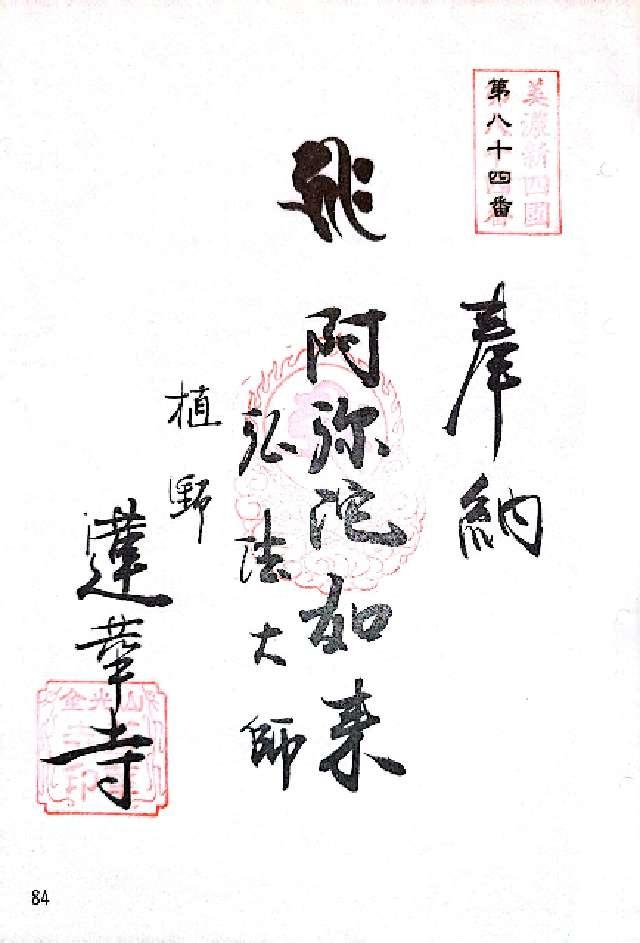 美濃新四国
第八十四番
奉納
阿弥陀如来
弘法大師
植野
蓮華寺
84